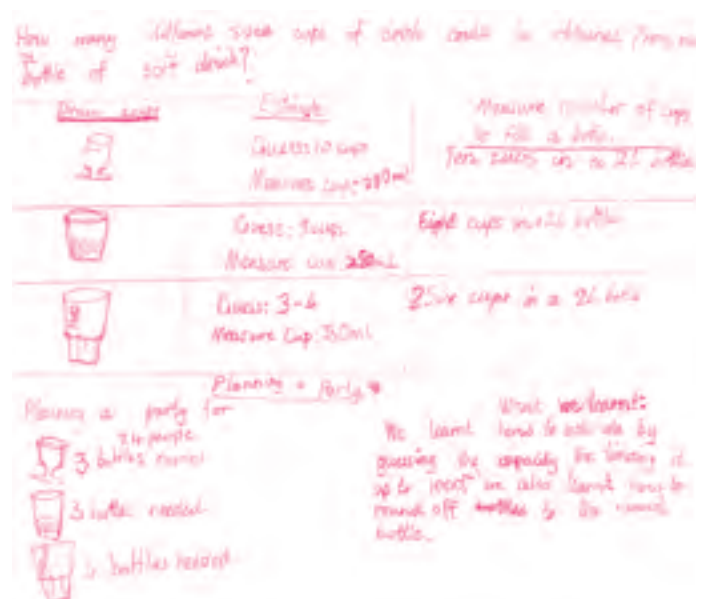 How many different sized cups of drink could be obtained from
bottle of soft drink?
Draw cups
Estimate
Measure number of cups
to fill a bottle.
Guess: 10 cups
Measure cup: 200ml
Ten cups in a 2L bottle
Guess: 9 cups
Measure cup 250mL
Eight cups in a 2L bottle
Guess: 3-4
Measure Cup: 350ml
cups in a 2L bottle
Planning a Party
Planning a party for
24 people
3 bottles needed
3 bottles needed
bottles needed
What we learnt:
We learnt how to estimate by
guessing the capacity
up to we also learnt how to
round off bottles to the
bottle.